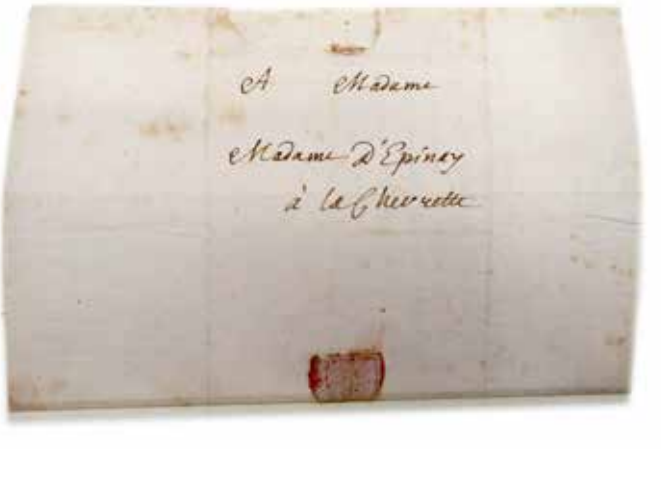 A Madame
Madame D'Epinay
à la Chevrette